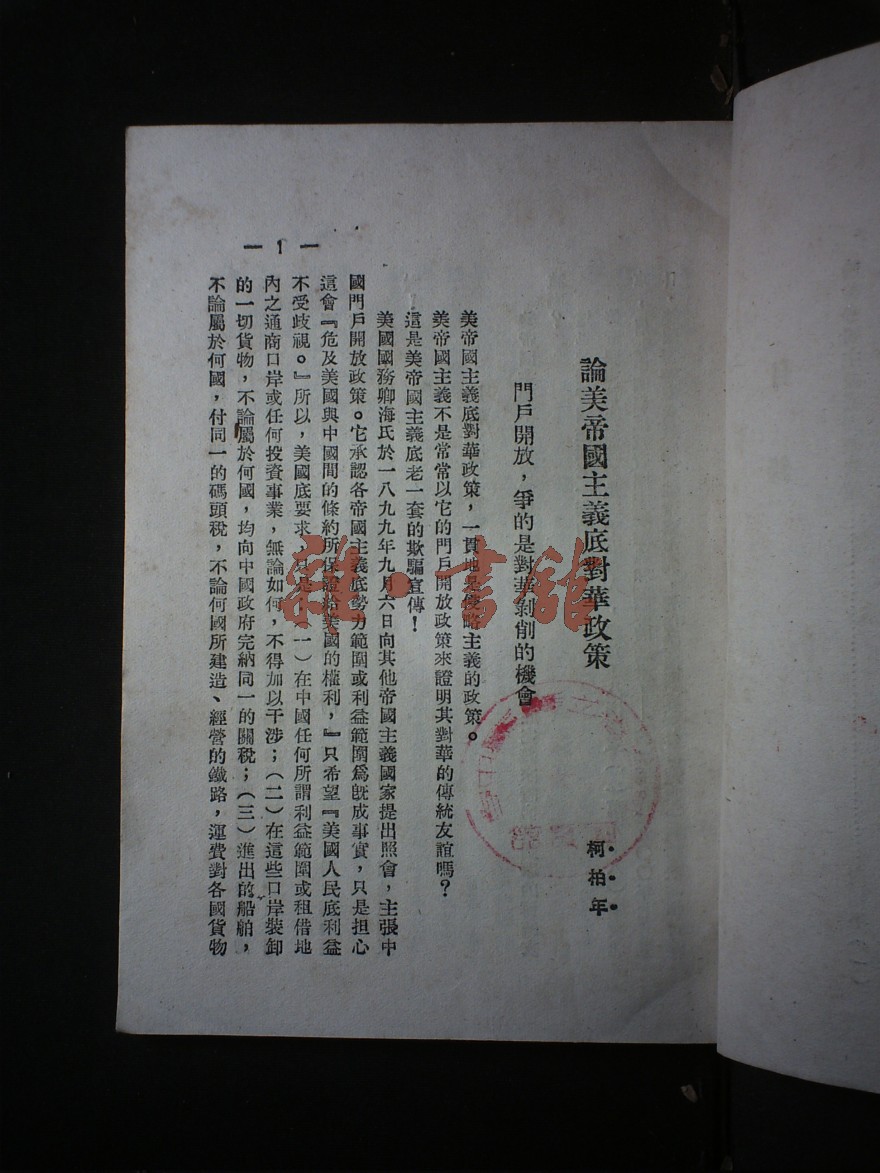 論美帝國主義底對華政策
柯柏年
門戶開放，爭的是對華剝削的機會
美帝國主義底對華政策，一貫地是侵略主義的政策。
美帝國主義不是常常以它的門戶開放政策來證明其對華的傳統友誼嗎？
這是美帝國主義底老一套的欺騙宣傳！
美國國務卿海氏於一八九九年九月六日向其他帝國主義國家提出照會，主張中
國門戶開放政策。它承認各帝國主義底勢力範圍或利益範圍爲旣成事實，只是担心
這會『危及美國與中國間的條約所保證給美國的權利，』只希望『美國人民底利益
不受歧視。』所以，美國底要求，只是（一）在中國任何所謂利益範圍或租借地
內之通商口岸或任何投資事業，無論如何，不得加以干涉；（二）在這些口岸裝卸
的一切貨物，不論屬於何國，均向中國政府完納同一的關稅；（三）進出的船舶，
不論屬於何國，付同一的碼頭稅，不論何國所建造、經營的鐵路，運費對各國貨物
— 1 —
雜·書館